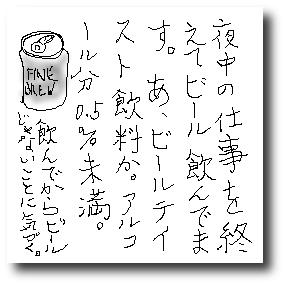 夜中の仕事を終
えてビール飲んでま
す。あ、ビールテイ
スト飲料か。アルコ
ール分0.5%未満。
飲んでからビール
じゃないことに気づく。
FINE
BREW